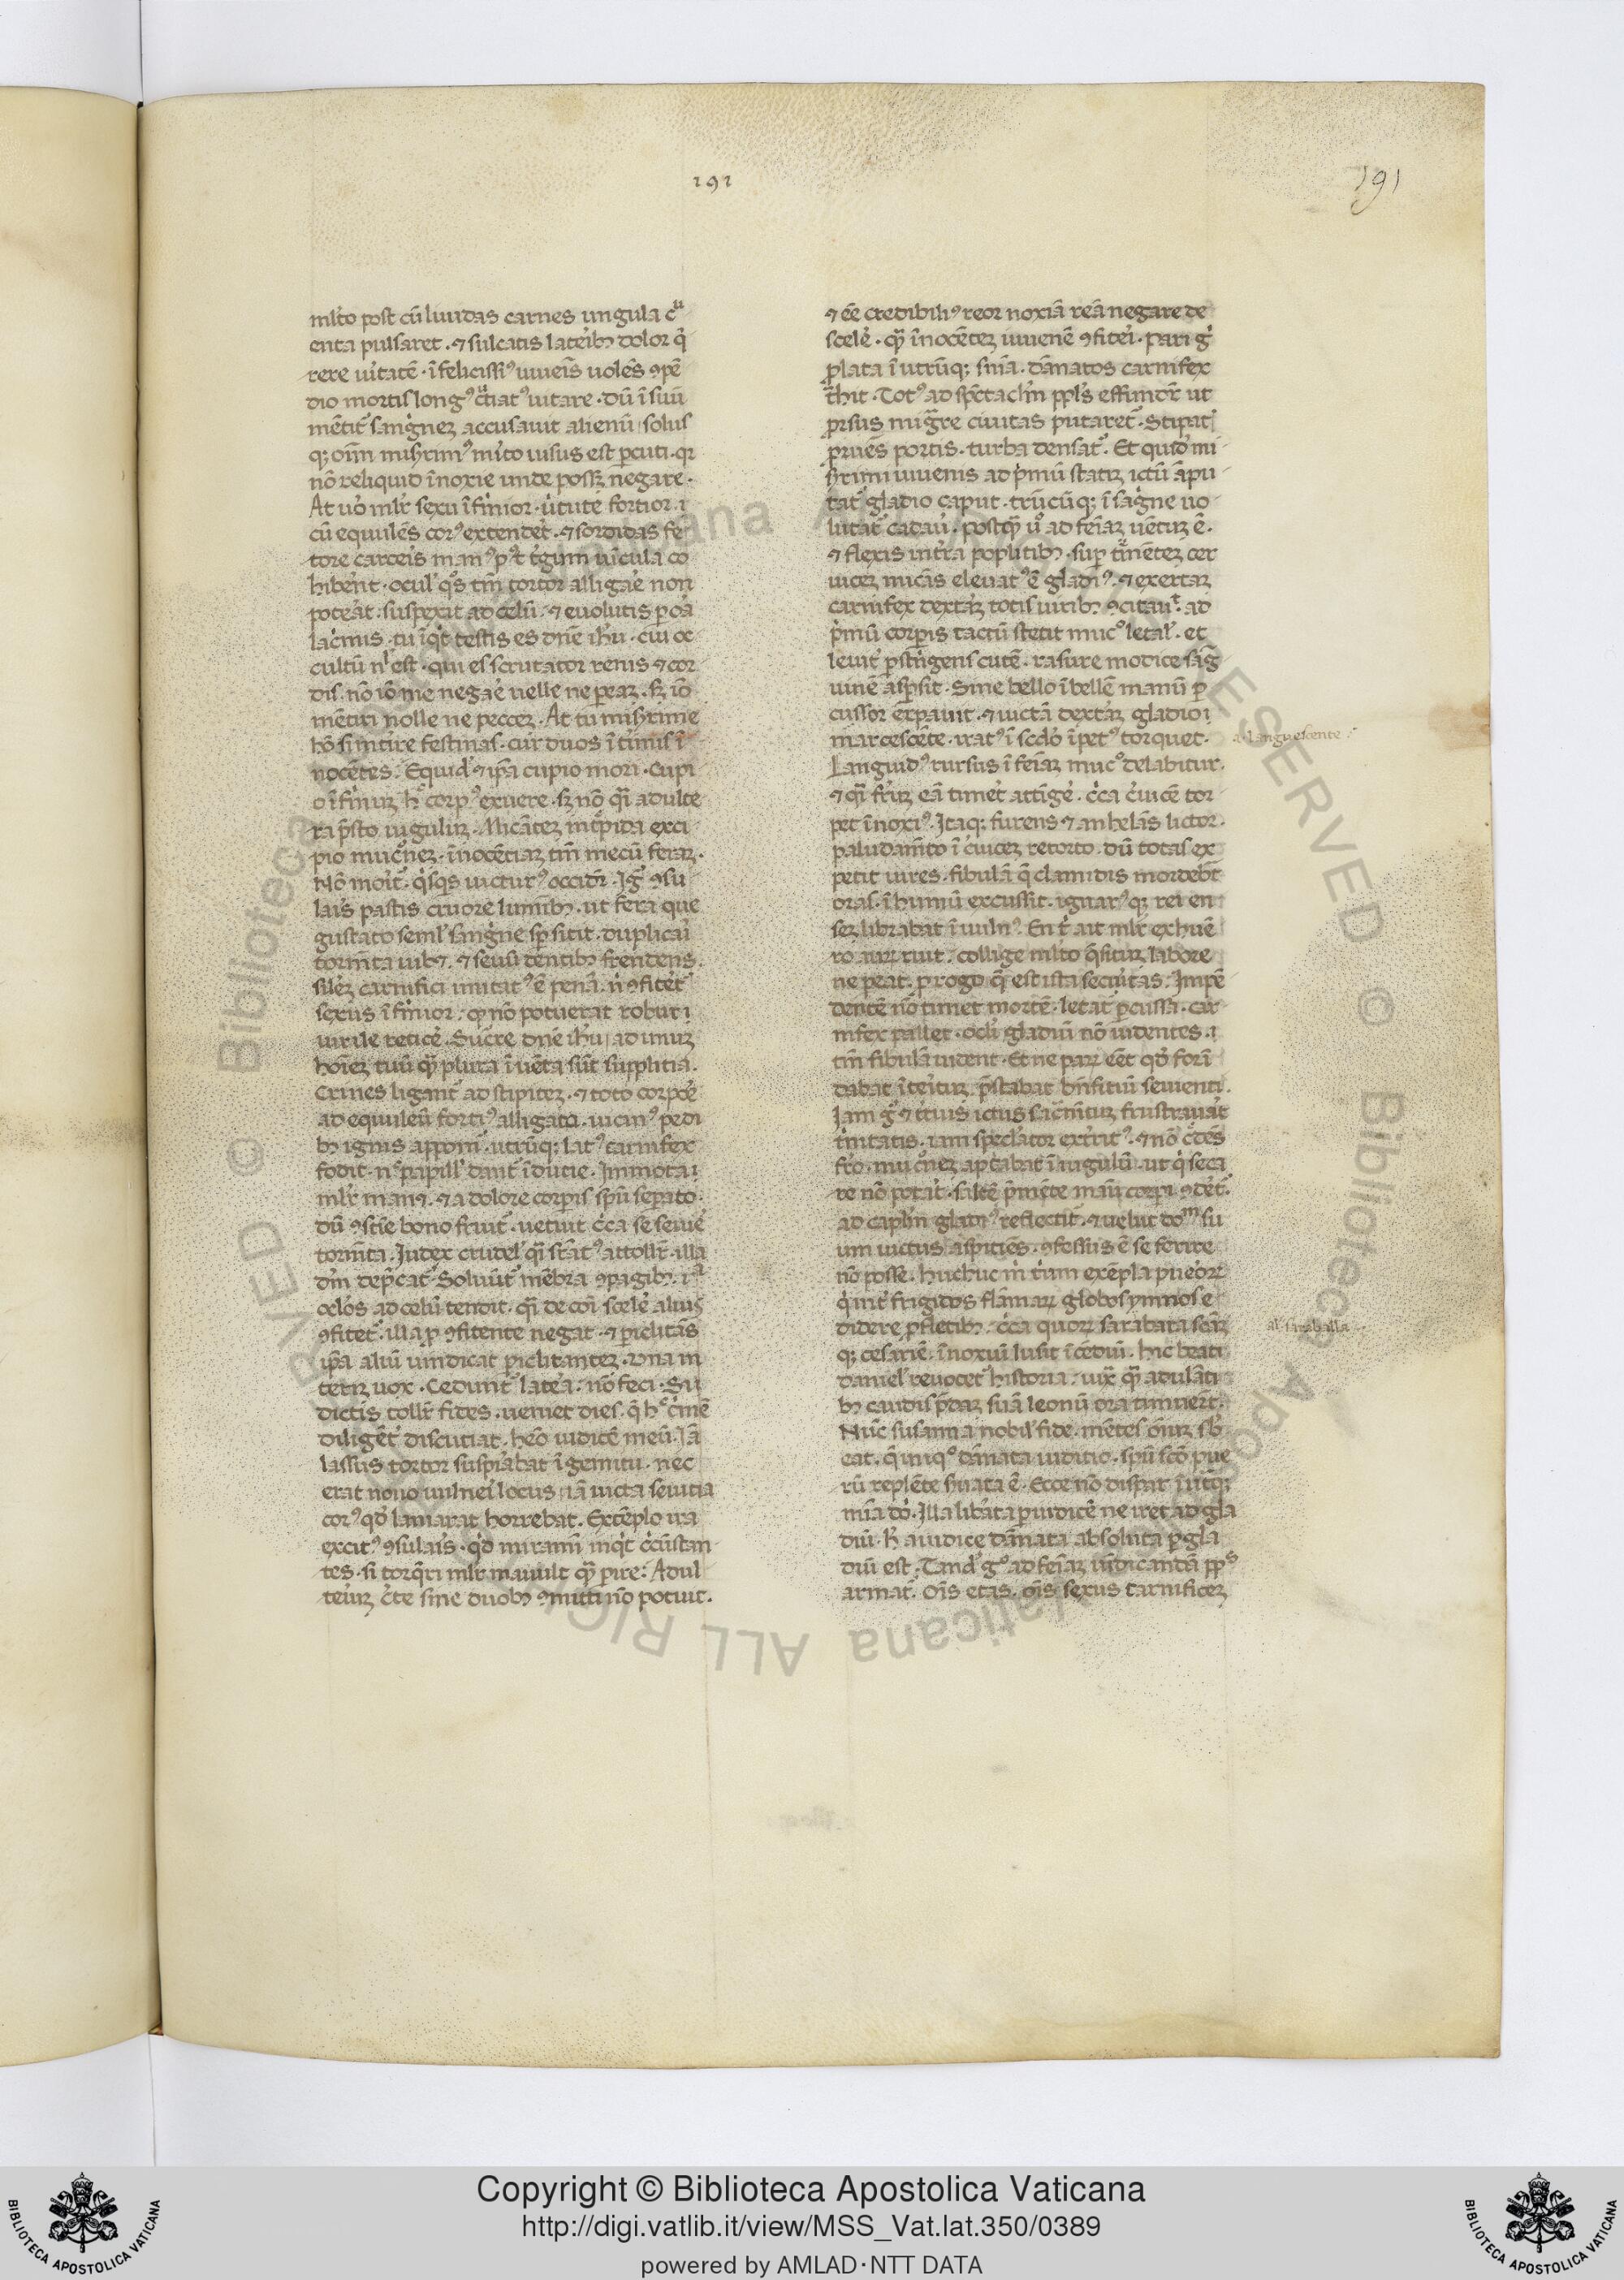 191
191
ml̄to post cū liuidas carnes ungula cͧ
enta pulsaret · ⁊ sulcatis lateribꝫ dolor q̇
rere ūitatē · īfelicissiꝰ iuueīs uolēs ꝯpē
dio mortis longꝰ cͧciatꝰ uitare · dū ī suū
mētit᷑ sanguinez accusauit alienū · solus
qꝫ oīm
nō reliquid īnoxie unde possꝫ negare ·
At ūo ml̄r sexu īfirior · ūtute fortior ·
cū equuleꝰ corꝰ extendēt · ⁊ sordidas fe
tore carceis manꝰ pꝰt t̄gum uīcula co
hibēnt · ocul᷑ qͦs tm̄ tortor alligare non
poterat · suspexit ad celū · ⁊ euolutis p oa
lacͥmis · tu īqͥt testis es dn̄e ih̄u · cui oc
cultū n̄l est · qui es scrutator renis ⁊ cor
dis · nō iō me negare uelle ne perea · sꝫ iō
mētiri nolle ne peccez · At tu mis̄rime
hō si intire festinas · cur duos ītimis ī
nocētes · Equid᷑ ⁊ ip̄a cupio mori · Cupi
o īfirmū hͦ corpꝰ exuere · sꝫ nō qͣi adulte
ra p̄sto iugulum · Micātez intͤpida exci
pio mucͦnez · īnocētiaꝫ tm̄ mecū feraꝫ ·
Nō morit᷑ · q̇sqs uicturꝰ occidit᷑ · Ig᷑ ꝯsu
laris pastis cruore luminibꝫ · ut fera que
gustato semel sanguine sp̄ sitit · duplicari
tormēta iubet · ⁊ seuū dentibꝫ frendens ·
silez carnifici minitatꝰ ē penā · n ꝯfiteret᷑
sexus īfirior · qͦ nō potuerat robur
uirile reticere · Sucͤre dn̄e ih̄u · ad unuꝫ
hoīez tuū qͣꝫ plura īuēta sūt supplitia ·
Crines ligant᷑ ad stipitez · ⁊ toto corpoͤ
ad equuleū fortiꝰ alligato · uicinꝰ pedi
bꝫ ignis apponit᷑ · utrūqꝫ latꝰ carnifex
fodit · nͨ papill᷑ dant᷑ īducie · Immota
ml̄r manet · ⁊ a dolore corpis sp̄u sepato ·
dū ꝯsciē bono fruit᷑ · uetuit cͥca se seuire
tormēta · Iudex crudel᷑ qͣi suꝑatꝰ attollit᷑ · illa
dn̄m depͥcat᷑ · Soluūt᷑ mēbra ꝯpagibꝫ · iͣ
oclōs ad celū tendit · qͣi de cōi scelere alius
ꝯfitet᷑ · illa ꝑ ꝯfitente negat · ⁊ piclitās
ip̄a aliū uindicat piclitantez · Una in
teriꝫ uox · Cedunt᷑ latera · nō feci · Si
dictis tollit᷑ fides · ueniet dies · q̄ hͦ cͥmē
diligēt᷑ discutiat · hēo iudicē meū · Iā
lassus tortor suspirabat īgemitu · nec
erat nouo uulneri locus · iā uicta seuitia
corꝰ qd̓ laniarat horrebat · Extēplo ira
excitꝰ ꝯsularis · qd̓ miramī inqͥt cͥcūstan
tes · si torqueri ml̄r mauult qͣꝫ perire · Adul
teriuꝫ cͤte sine duobꝫ ꝯmitti nō potuit ·
⁊ eē credibiliꝰ reor noxiā reā negare de
scelere · qͣꝫ īnocētez iuuenē ꝯfiteri · Pari gͥ
plata ī utrūqꝫ sn̄ia · dānatos carnifex
tͣhit · Totꝰ ad spectacl̄m ppl̄s effundit᷑ ut
prsus migͣre ciuitas putaret᷑ · Stipatꝭ
pruēs portis · turba densat᷑ · Et quid̓ mi
s̄rimi iuuenis ad pͥmū statiꝫ ictū āpu
tat᷑ gladio caput · trūcūqꝫ ī sāgne uo
lutat᷑ cadauer · postqͣꝫ ūo ad feīaꝫ uētuꝫ ē ·
⁊ flexis in terra poplitibꝫ · sup tͤmētez cer
uicez micās eleuatꝰ ē gladiꝰ · ⁊ exertaꝫ
carnifex dextaꝫ totis uiribꝫ ꝯcitauͥt · ad
pͥmū corpis tactū stetit mucͦ letal᷑ · et
leuit᷑ pstringens cutē · rasure modice sāg
uinē aspsit · Sine bello ībellē manū p
cussor expauit · ⁊ uictā dextaꝫ gladio
marcescēte · iratꝰ ī scd̄o īpetꝰ torquet ·
Languidꝰ rursus ī feīaꝫ mucͦ delabitur ·
⁊ qͣi ferrꝫ eā timeret attīgere · cͥca cͤuicē tor
pet īnoxiꝰ · Itaqꝫ furens ⁊ anhelās lictor ·
paludam̄to ī cͤuicez retorto · dū totas ex
petit uires · fibulā q̄ clamidis mordebat
oras · ī humū excussit · ignarꝰqꝫ rei en
sez librabat ī uulnꝰ · En tͥ ait ml̄r ex hue
ro auꝝ ruit · collige ml̄to q̄situꝫ labore
ne pereat · p rogo q̄ est ista secͥtas · Impē
dentē nō timet mortē · letat᷑ pcussa · car
nifex pallet · ocl̄i gladiū nō uidentes ·
tm̄ fibulā uident · Et ne parꝫ eēt qd̓ fori
dabat īteritꝫ · p̄stabat bn̄fitiū seuienti ·
Iam gͦ ⁊ tͥtius ictus sacͣm̄tuꝫ frustrauāt
tͥnitatis · iam specl̄ator extͥritꝰ · ⁊ nō cͤdēs
fro · mucͦnez aptabat ī iugulū · ut q̇ seca
re nō potāt · saltē pͥmēte manū corpi ꝯdēt᷑ ·
ad capl̄m gladiꝰ reflectit᷑ · ⁊ uelut doᵐ su
um uictus aspitiēs · ꝯfessus ē se ferire
nō posse · huc huc m tͥum exēpla pueroꝝ
q̇ int᷑ frigidos flāmaꝝ globos ymnos e
didere p fletibꝫ · cͥca quoꝝ sarabara scāꝫ
qꝫ cesariē · īnoxiū lusit īcēdiū · hic beati
daniel᷑ reuocet᷑ historia · iuxͣ qͣꝫ adulāti
bꝫ caudis pͤdaꝫ suā leonū ora timuert ·
Nūc susanna nobil᷑ fide · mētes oīum sb̓
eat · q̄ iniqͦ dānata iuditio · spū scō pue
rū replēte s̄uata ē · Ecce nō dispar ī utͣqꝫ
mīa dn̄i · Illa libāta p iudicē ne iret ad gla
diū · hͨ a iudice dānata absoluta p gla
diū est · Tand᷑ gͦ ad feīaꝫ uīdicandā ppͦs
armat᷑ · Oīs etas · oīs sexus carnificez
al · languescente ·
al · saraballa ·
Copyright © Biblioteca Apostolica Vaticana
http://digi.vatlib.it/view/MSS_Vat.lat.350/0389
powered by AMLAD·NTT DATA
BIBLIOTECA APOSTOLICA VATICANA
BIBLIOTECA APOSTOLICA VATICANA